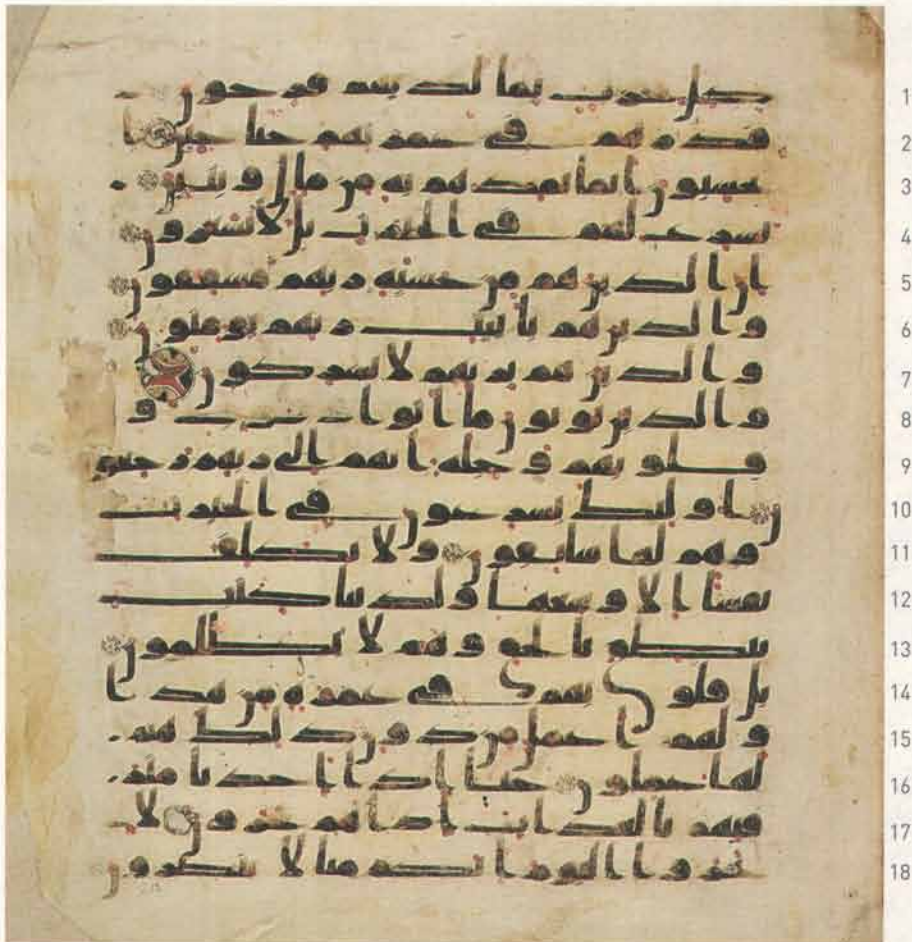 1 كل حزب بما لديهم فرحون
2 فذرهم في غمرتهم حتى حين ا
3 يحسبون انما نمدهم به من مال وبنين
4 نسرع لهم في الخيرت بل لا يشعرون
5 ان الذين هم من خشية ربهم مشفقون
6 والذين هم بايت ربهم يومنون
7 والذين هم بربهم لا يشركون
8 والذين يوتون ما اتوا و
9 قلوبهم وجلة انهم الى ربهم رجعو
10 ن اولئك يسرعون في الخيرت
11 وهم لها سبقون ولا نكلف
12 نفسا الا وسعها ولدينا كتب
13 ينطق بالحق وهم لا يظلمون
14 بل قلوبهم في غمرة من هذا
15 ولهم اعمل من دون ذلك هم
16 لها عملون حتى اذا اخذنا متر
17 فيهم بالعذاب اذا هم يجرون لا
18 تجروا اليوم انكم منا لا تنصرون